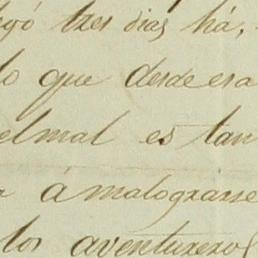 tres dias há,
lo que desde esa
el mal es tan
á malograrse
los aventureros